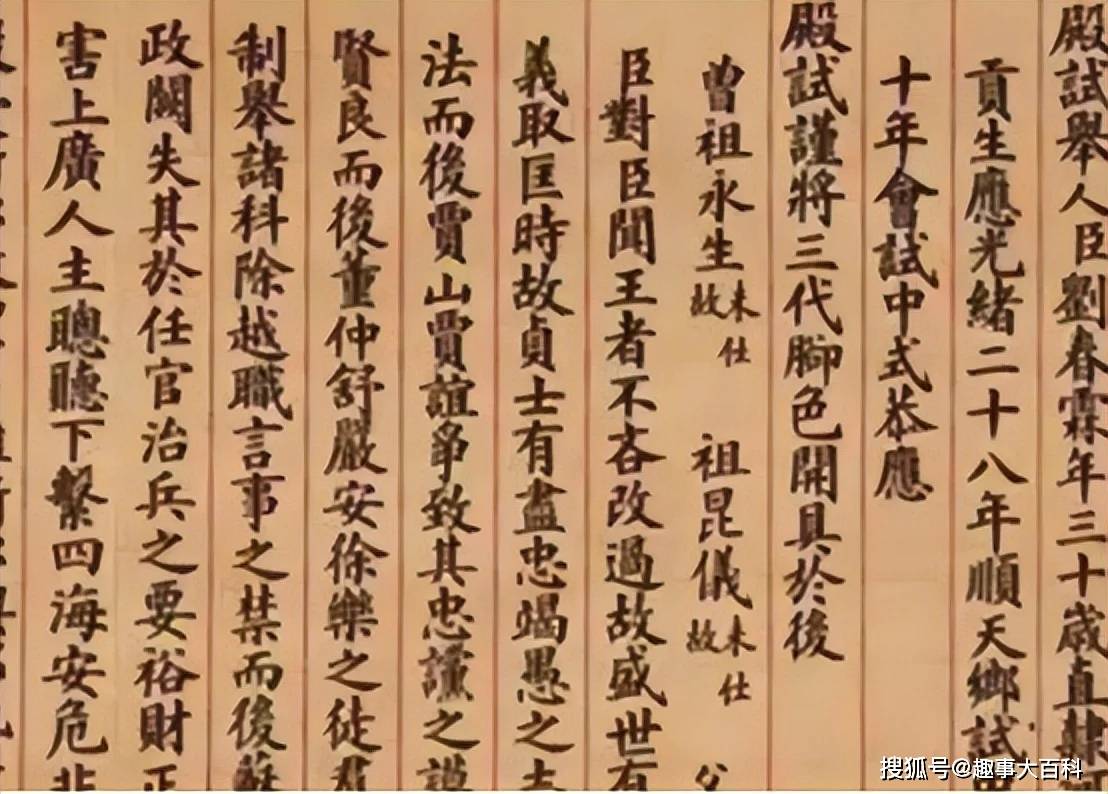 殿試舉人臣劉春霖年三十歲直隸
貢生應光緒二十八年順天鄉試
十年會試中式恭應
殿試謹將三代腳色開具於後
曾祖永生未仕故 祖昆儀未仕故 父
臣對臣聞王者不吝改過故盛世有
義取匡時故貞士有盡忠竭愚之
法而後賈山賈誼爭致其忠讜之謨
賢良而後董仲舒嚴安徐樂之徒
制舉諸科除越職言事之禁而後蘇
政闕失其於任官治兵之要裕財正
害上廣人主聰聽下繫四海安危非
搜狐号@趣事大百科